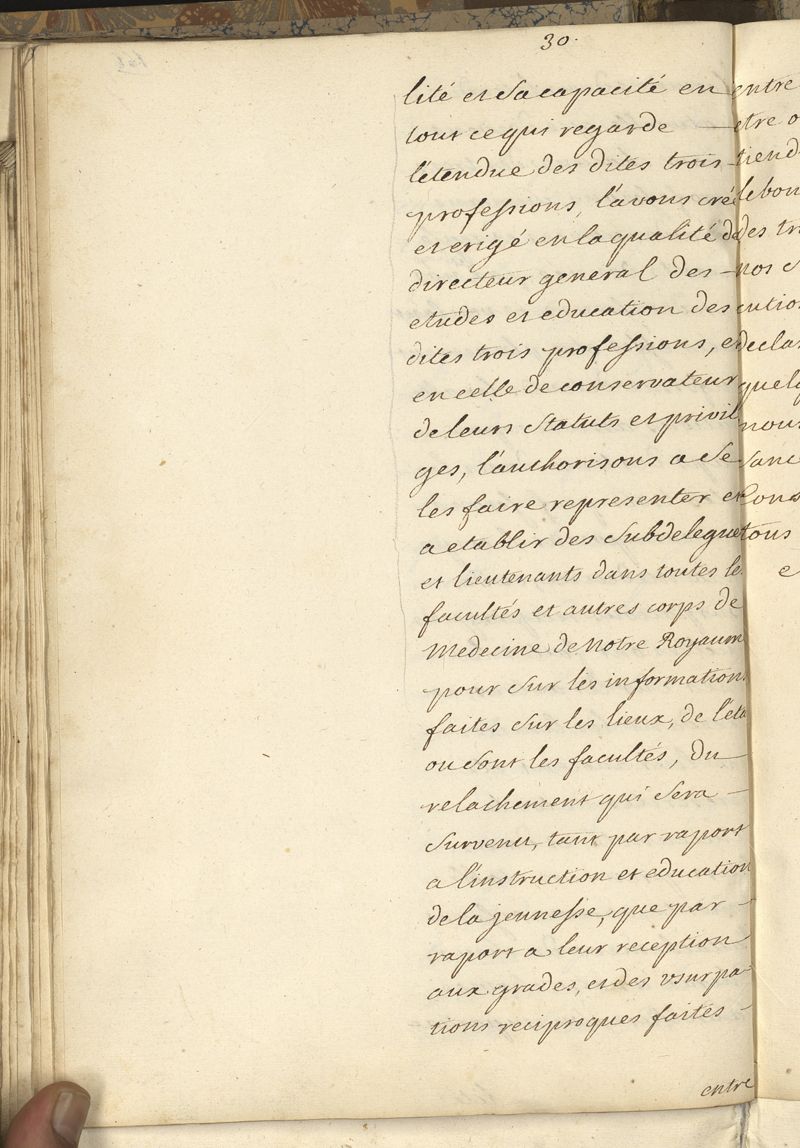 30.
lité et sa capacité en
tout ce qui regarde
l'étendue des dites trois
professions, l'avons créé
et erigé en la qualité de
directeur general des
etudes et education des
dites trois professions, e
en celle de conservateur
de leurs Statuts et privil
ges, l'authorisons a se
les faire representer et
a etablir des Subdelegue
et lieutenants dans toutes le
facultés et autres corps de
Medecine de Notre Royaum
pour sur les informations
faites sur les lieux, de l'éta
ou sont les facultés, du
relachement qui sera
survenu, tant par raport
a l'instruction et education
de la jeunesse, que par
raport a leur reception
aux grades, et des usurpa
tions reciproques faites
entre
entre
etre o
tiend
le bon
des tr
nos
cutio
decla
quelq
nous
sanc
Cons
tous
e